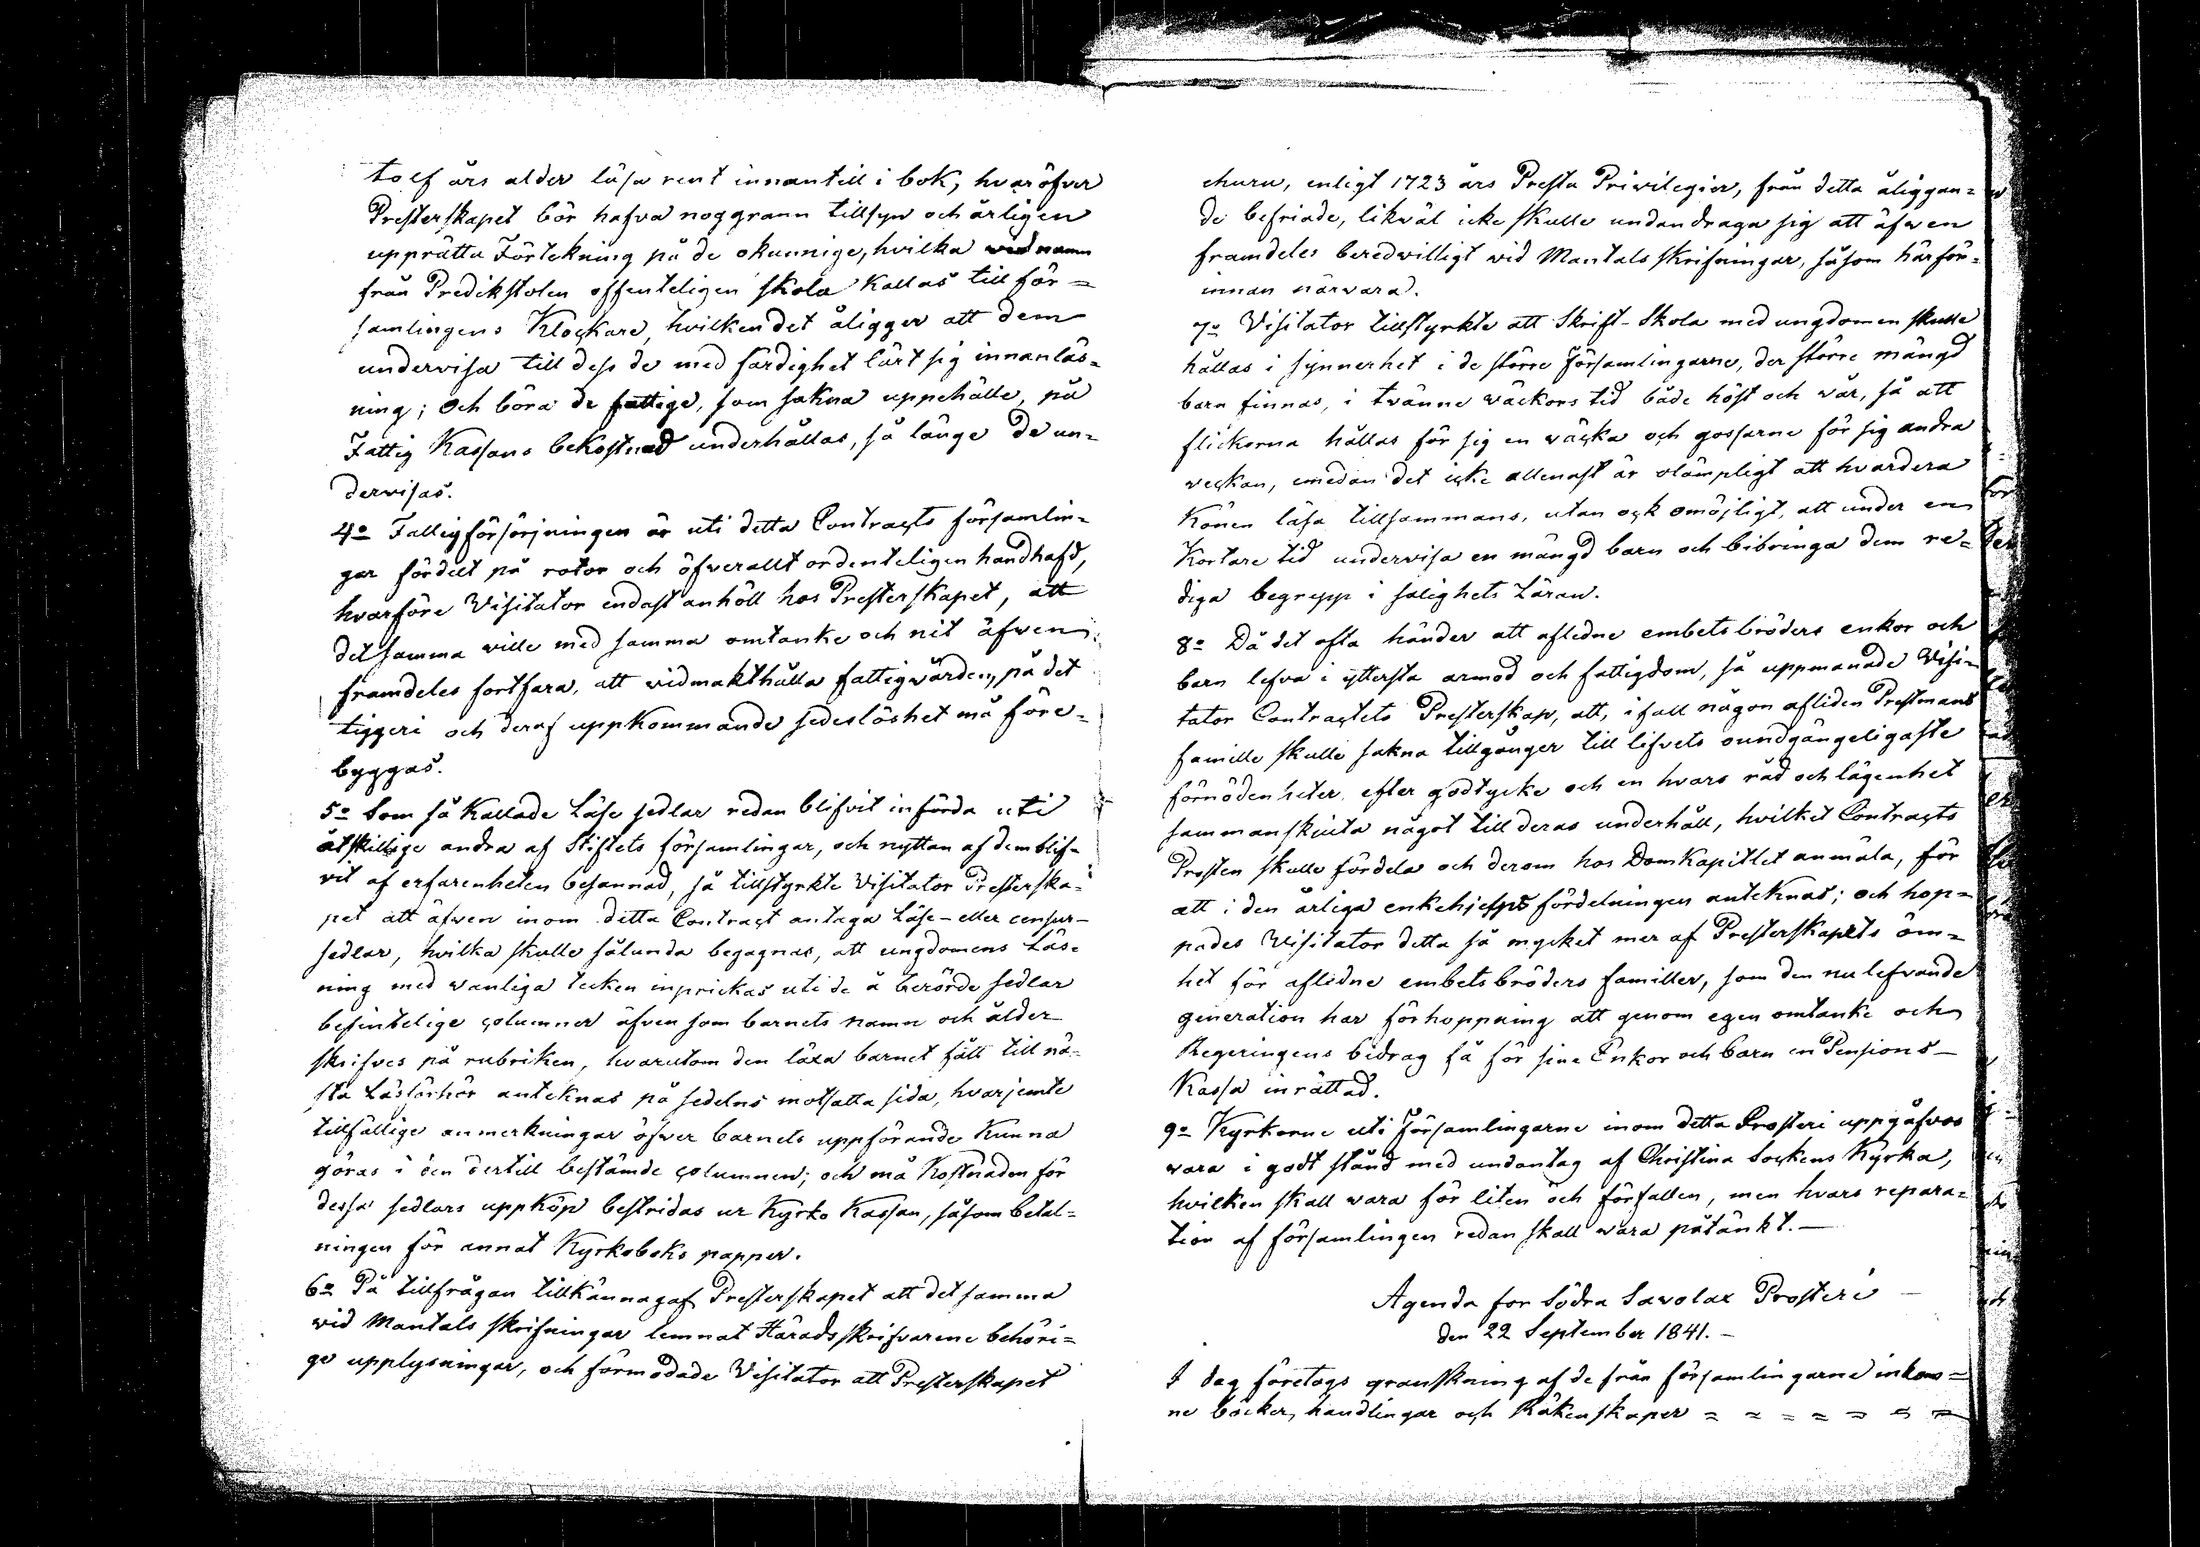 tolf års alder läsa rent innantill i bok, hvaröfver
Presterskapet bör hafva noggrann tillsyn och årligen
upprätta Förtekning på de okunnige, hvilka wid namn
från Predikstolen offenteligen skola kallas till för=
samlingens Klockare, hvilken det åligger att dem
undervisa till dess de med färdighet lärt sig innanläs=
ning; och böra de fattige, som sakna uppehälle, på
Fattig Kassans bekostnad underhållas, så länge de un=
dervisas.
4o Fattigförsörjningen är uti detta Contracts församlin=
gar fördelt på rotor och öfverallt ordenteligen handhafd,
hvarföre Visitator endast anhöll hos Presterskapet, att
detsamma ville med samma omtanke och nit äfwen
framdeles fortfara, att vidmakthålla fattigwården, på det
tiggeri och deraf uppkommande sedeslöshet må före=
byggas.
5o Som så kallade Läse sedlar redan blifvit införda uti
åtskillige andra af Stiftets församlingar, och nyttan af dem blif=
vit af erfarenheten besannad, så tillstyrkte Visitator Presterska=
pet att äfven inom detta Contract antaga Läse- eller censur-
sedlar, hvilka skulle sålunda begagnas, att ungdomens Läs=
ning med wanliga tecken inprickas uti de å berörde sedlar
befintelige columner äfvensom barnets namn och ålder
skrifves på rubriken, hvarutom den läxa barnet fått till nä=
sta Läsförhör anteknas på sedelns motsatta sida, hvarjemte
tillfällige anmerkningar öfwer barnets uppförande kunna
göras i den dertill bestämde columnen; och må kostnaden för
dessa sedlars uppköp bestridas ur Kyrko Kassan, såsom betal=
ningen för annat Kyrkoboks papper.
6o På tillfrågan tillkännagaf Presterskapet att detsamma
wid Mantals skrifningar lemnat Häradsskrifvarene behöri=
ge upplysningar, och förmodade Visitator att Presterskapet
ehuru, enligt 1723 års Presta Privilegier, från detta åliggan=
de befriade, likväl icke skulle undandraga sig att äfwen
framdeles beredwilligt wid Mantals skrifningar, såsom härför=
innan närvara.
7o Visitator tillstyrkte att Skrift-Skola med ungdomen skulle
hållas i synnerhet i de större församlingarne, der större mängd
barn finnas, i tvänne wäckors tid både höst och wår, så att
flickorna hållas för sig en wäcka och gossarne för sig andra
veckan, emedan det icke allenast är olämpligt att hvardera
Könen läsa tillsammans, utan ock omöjligt, att under en
kortare tid undervisa en mängd barn och bibringa dem re=
diga begrepp i salighets Läran.
8o Då det ofta händer att aflidne embetsbröders enkor och
barn lefva i yttersta armod och fattigdom, så uppmanade Visi=
tator Contractets Presterskap, att, i fall någon afliden Prestmans
famille skulle sakna tillgånger till lifvets oundgängeligaste
förnödenheter, efter godtycke och en hvars råd och lägenhet
sammanskiuta något till deras underhåll, hvilket Contracts
Prosten skulle fördela och derom hos Domkapitlet anmäla, för
att i den årliga enkehjelps fördelningen anteknas; och hop=
pades Visitator detta så mycket mer af Presterskapets öm=
het för aflidne embetsbröders familler, som den nu lefvande
generation har förhoppning att genom egen omtanke och
Regeringens bidrag få för sine Enkor och barn en Pensions-
Kassa inrättad.
9o Kyrkorne uti församlingarne inom detta Prosteri uppgåfvos
wara i godt stånd med undantag af Christina Sockens Kyrka,
hvilken skall wara för liten och förfallen, men hvars repara=
tion af församlingen redan skall wara påtänkt. —
Agenda for Södra Savolax Prosteri
den 22 September 1841. —
I dag företogs granskning af de från församlingarne inkom=
ne böcker, handlingar och Räkenskaper = = = = = = =